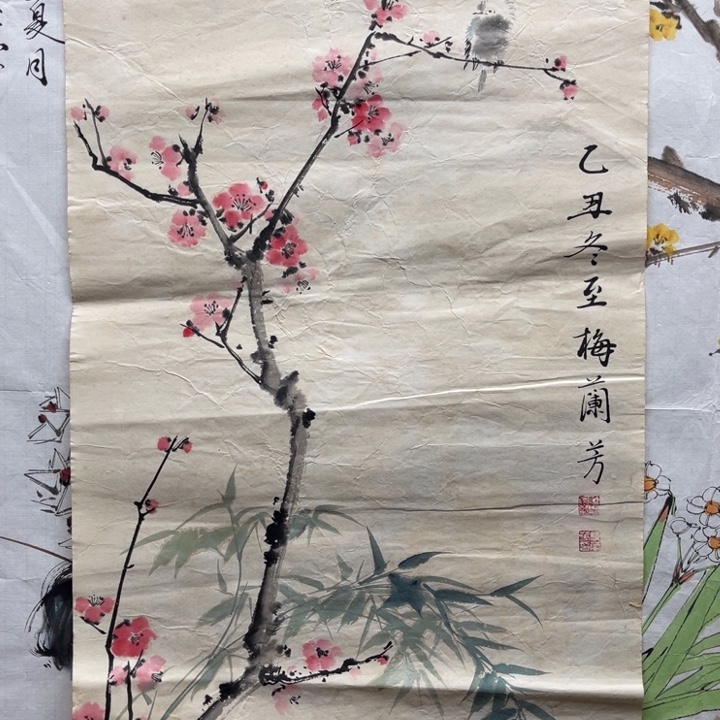 乙丑冬至梅蘭芳
夏月